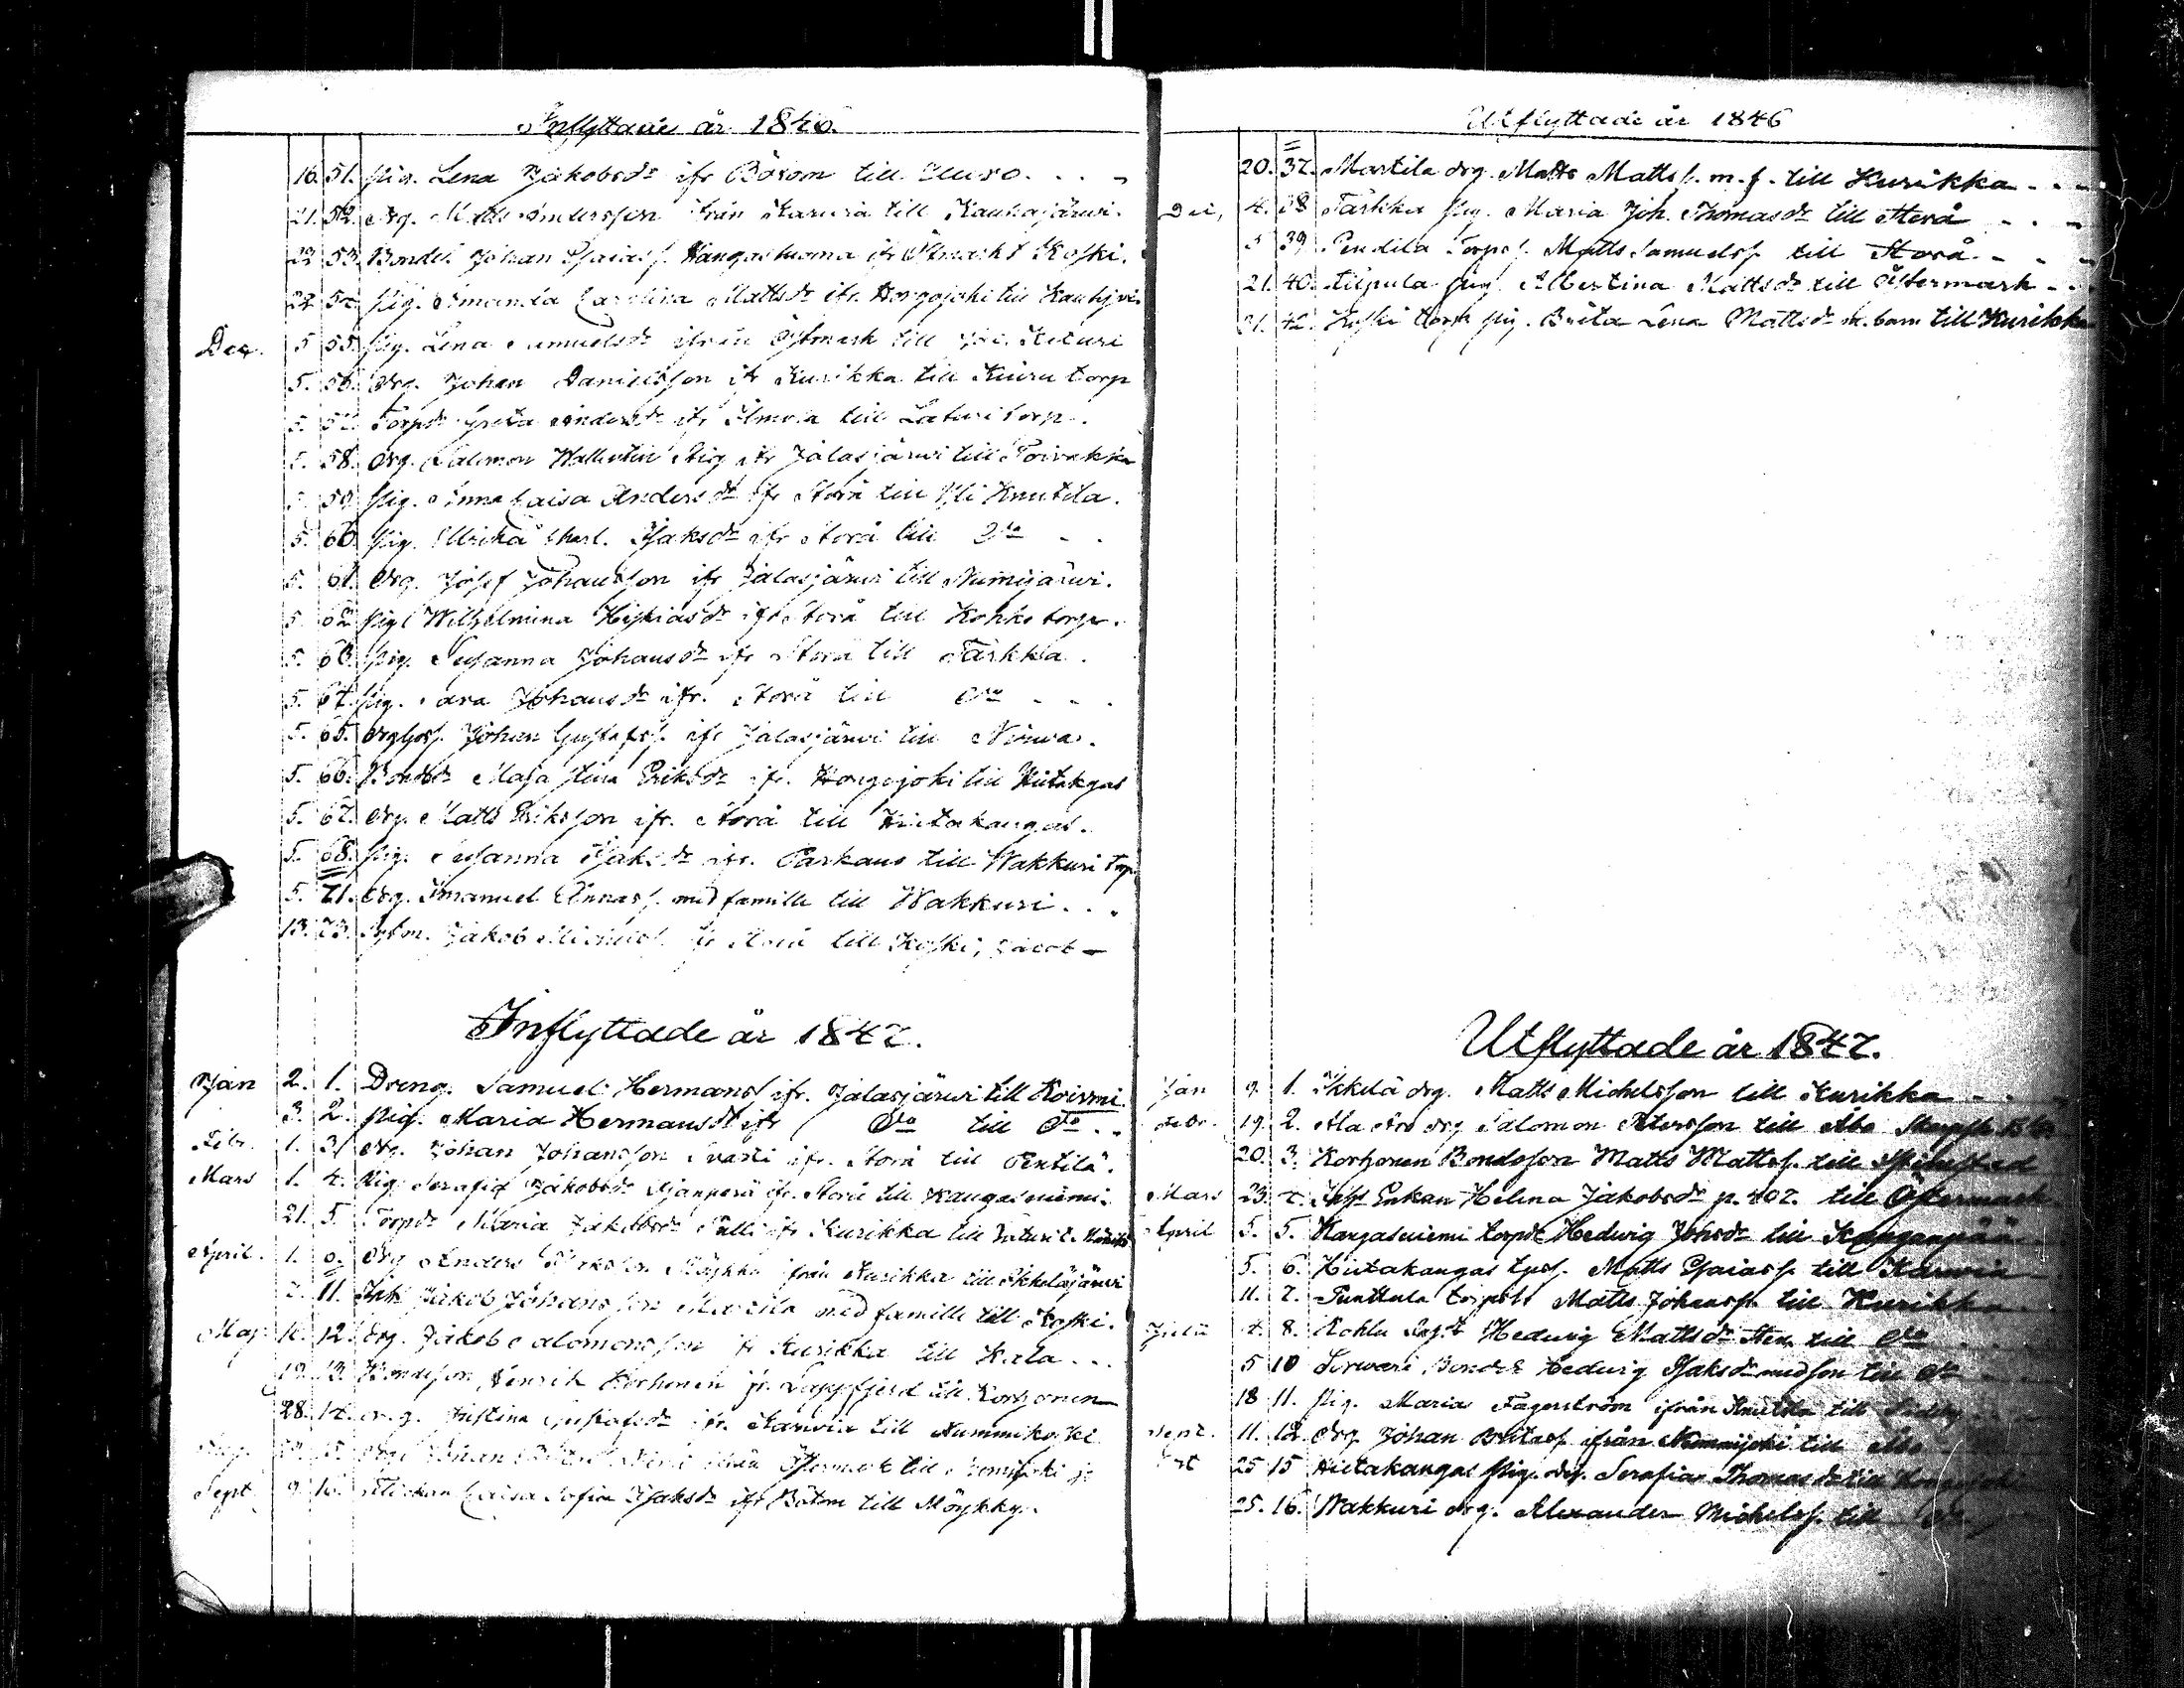 Inflyttade år 1846.
16. 51. Pig. Lena Jakobsdr ifr Bötom till Luro. . . -
21. 52. Drg. Matts Andersson från Karvia till Kauhajärvi.
22 53. Bonden Johan Esaiass. Kangasluoma ifr Östmark t Koski.
22. 54. Pig. Amanda Carolina Mattsdr ifr. Hongojoki till Kauhjrvi
Dec. 5 55. Pig. Lena Samuelsdr ifrån Östmark till
5. 56. Drg. Johan Danielsson ifr Kurikka till Kiuru torp
5. 57. Torpdr Greta Andersdr ifr Ilmola till Laturi torp.
5. 58. Drg. Salomon Wallentin Stig ifr Jalasjärvi till Toivakka
5. 59. Pig. Anna Caisa Andersdr ifr Storå till Yli Knutila.
5. 60. Pig. Ulrika Charl. Isaksdr ifr Storå till Do - -
5. 61. Drg. Josef Johansson ifr Jalasjärvi till Numijärvi.
5. 62. Pig. Wilhelmina Hiskiasdr ifr Storå till Kohke torp.
5. 63. Pig. Susanna Johansdr ifr Storå till Särkkä.
5. 64. Pig. Sara Johansdr ifr. Storå till Do - - -
5. 65. Johan Gustafss. ifr Jalasjärvi till Nirwa.
5. 66. Bondedr Maja Stina Eriksdr ifr. Hongojoki till Hietakgas
5. 67. Drg. Matts Eriksson ifr. Storå till Hietakangas.
5. 68. Pig. Susanna Isaksdr ifr. Parkano till Wakkuri torp
5. 71. Drg. Imanuel Annass. med familie till Wakkuri . . .
13. 73. Jakob Michelss. ifr Storå till Koski, Jacob -
Inflyttade år 1847.
Jan 2. 1. Dreng. Samuel Hermanss ifr. Jalasjärvi till Koivmi.
3. 2. Pig. Maria Hermansdr ifr Do till Do . .
Febr. 1. 3. Drg. Johan Johansson Svarti ifr. Storå till Pentilä.
Mars 1. 4. Pig. Serafia Jakobsdr ifr. Storå till Kangasniemi.
21. 5. Torpdr Maria Jakobsdr ifr Kurikka till Laturi t.
April. 1. Drg Anders ifrån Kurikka till Ikkeläjärvi
2. 11. Jakob Johansson Martila med familie till Koski.
Maj 12 Drg. Jakob Salomonsson ifr Kurikka till Kala . . .
13. Bondeson Henrik Korhonen fr. Lappfjerd till Korhonen
28. 14. Kristina Gustafsdr ifr. Karvia till Nummikoski
Johan Östermark till
Sept. 9. 16. Flickan Caisa Sofia Isaksdr ifr Bötom till Möykky.
Utflyttade år 1846
20. 37. Martila drg. Matts Mattss. m. f. till Kurikka - . -
Dec, 4. 38 Särkka pig. Maria Joh. Thomasdr till Storå - . -
5 39. Pendila Torps. Matts Samuelss till Storå - - -
21. 40. Filpula pig. Albertina Mattsdr till Östermark - .
21. 42. Koski torp pig. Brita Lena Mattsdr m. barn till Kurikka
Utflyttade år 1847.
Jan 9. 1. Ikkelä drg. Matts Michelsson till Kurikka - . -
Febr. 19. 2. Ala drg Salomon Petersson till Åbo
20. 3. Korhonen Bondsson Matts Mattss. till
Mars 23. 4. Enkan Helena Jakobsdr p. 402. till Östermark
April 5. 5. Kangasniemi torpdr Hedwig Johsdr till Kanganpää
5. 6. Hietakangas tps. Matts Esaiass. till Karvia -
11. 7. Punttula torps Matts Johanss till Kurikka
Julii 4. 8. Kohlu Hedwig Mattsdr till Do
5 10 Sorwari Bondes Hedwig Isaksdr med son till Do
18 11. Pig. Maria Fagerström ifrån Knutila till
Sept. 11. 12. Drg. Johan Britass. ifrån Nummijoki till Åbo
Oct 25 15 Hietakangas Pig. Serafia Thomasdr till
25. 16. Wakkuri drg. Alexander Michelss. till Do